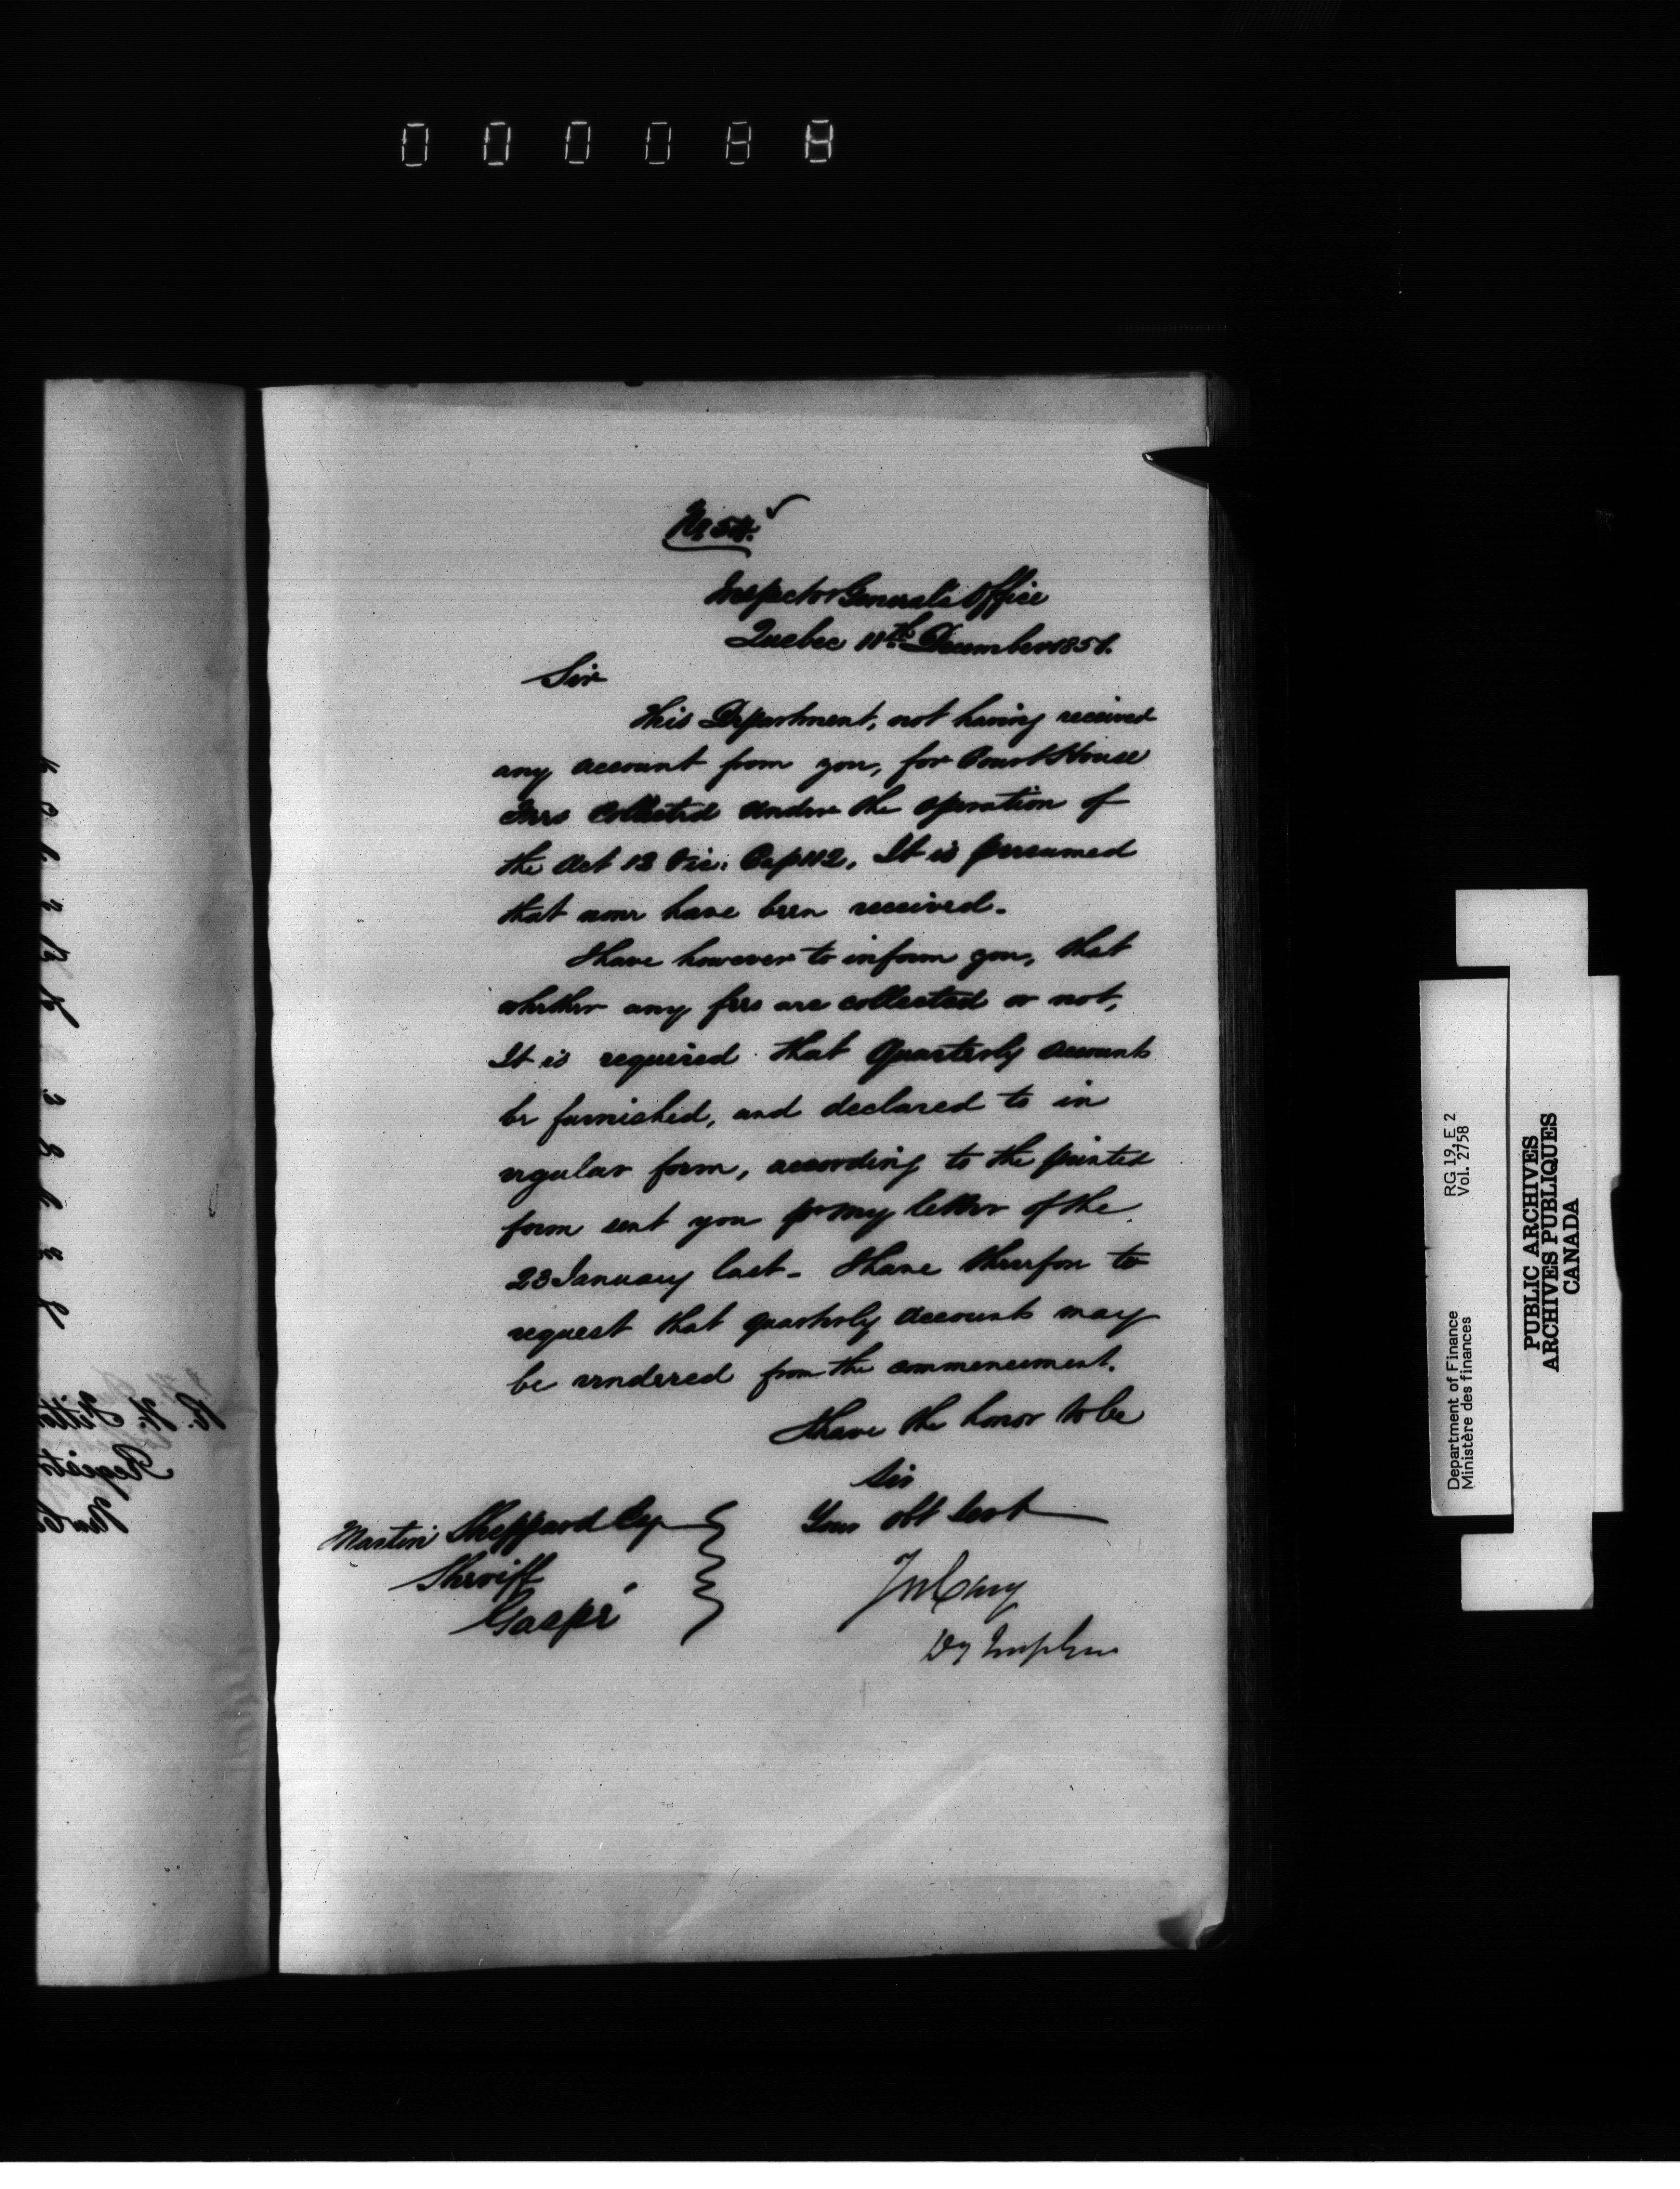 000088
No 54.
Inspector General's Office
Quebec 11th December 1851.
Sir
This Department, not having received
any account from you, for Court House
Fees Collected under the operation of
the Act 12 Vic: Cap 112, It is presumed
that none have been received.
I have however to inform you, that
whether any fees are collected or not,
It is required that Quarterly accounts
be furnished, and declared to in
regular form, according to the printed
form sent you pr my letter of the
23 January last - I have therefore to
request that quarterly accounts may
be rendered from the commencement.
I have the honor to be
Sir
Your obt Servt
Martin Sheppard Esq
Sheriff
Gaspé
Jos Cary
Dy Insp Gen
Department of Finance
Ministère des finances
RG 19, E 2
Vol. 2758
PUBLIC ARCHIVES
ARCHIVES PUBLIQUES
CANADA